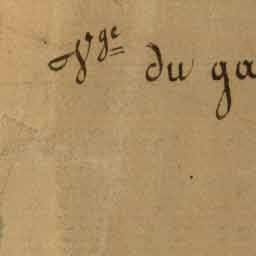 Vge du ga